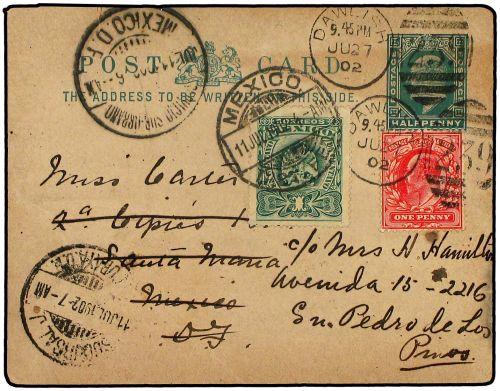 DAWLISH
9.45 PM
JU 27
02
MEXICO D.F.
POST CARD
THE ADDRESS TO BE WRITTEN THIS SIDE.
POSTAGE
HALFPENNY
MEXICO
DAWLISH
9.45
JU 27
02
CORREOS
MEXICO
1
ONE PENNY
Miss Carter
4a Ciprés
Santa Maria
Mexico
D.F.
c/o Mrs H Hamilton
Avenida 15 - 2216
Sn. Pedro de Los
Pinos
SUCURSAL
11 JUL 1902 - 7 - AM